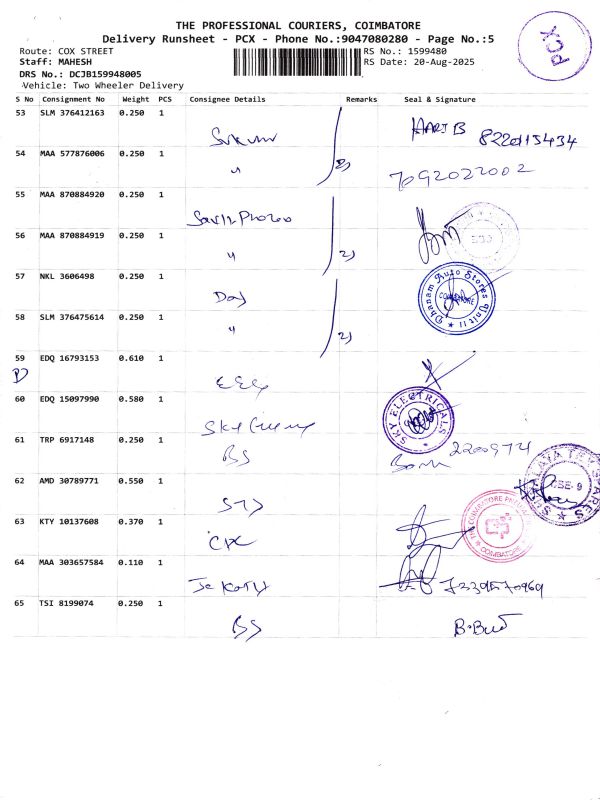 THE PROFESSIONAL COURIERS, COIMBATORE
Delivery Runsheet - PCX - Phone No.:9047080280 - Page No.:5
PCX
Route: COX STREET
RS No.: 1599480
Staff: MAHESH
RS Date: 20-Aug-2025
DRS No.: DCJB159948005
Vehicle: Two Wheeler Delivery
S No Consignment No Weight PCS Consignee Details Remarks Seal & Signature
53 SLM 376412163 0.250 1
HARI B
54 MAA 577876006 0.250 1
2)
7092022002
55 MAA 870884920 0.250 1
56 MAA 870884919 0.250 1
2)
57 NKL 3606498 0.250 1
Dhanam Auto Stores Unit II
58 SLM 376475614 0.250 1
2)
59 EDQ 16793153 0.610 1
60 EDQ 15097990 0.580 1
SKY ELECTRICALS
61 TRP 6917148 0.250 1
BS
62 AMD 30789771 0.550 1
63 KTY 10137608 0.370 1
COIMBATORE
64 MAA 303657584 0.110 1
65 TSI 8199074 0.250 1
BS